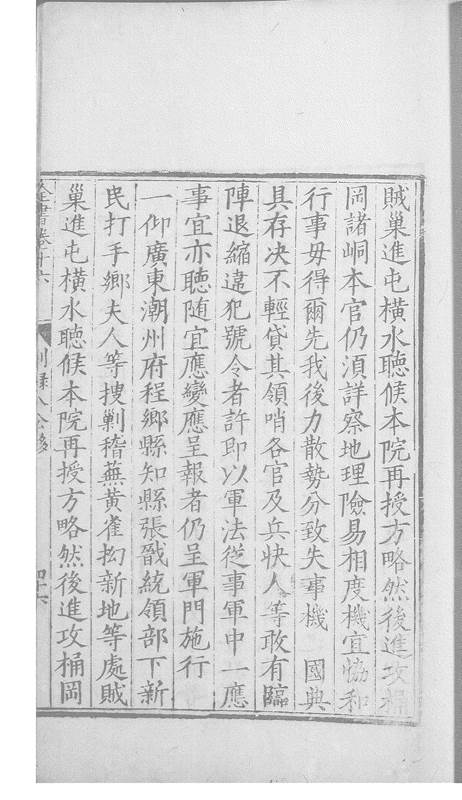 賊巢進屯橫水聽候本院再授方略然後進攻桶
岡諸峒本官仍湏詳察地理險易相度機宜協和
行事毋得爾先我後力散勢分致失事機　國典
具存决不輕貸其領哨各官及兵快人等敢有臨
陣退縮違犯號令者許即以軍法從事軍中一應
事宜亦聽随宜應變應呈報者仍呈軍門施行
一仰廣東潮州府程鄉縣知縣張戩統領部下新
民打手鄉夫人等搜剿稽蕪黄雀坳新地等處賊
巢進屯橫水聽候本院再授方略然後進攻桶岡
全書卷十六　別録八公移　四十六